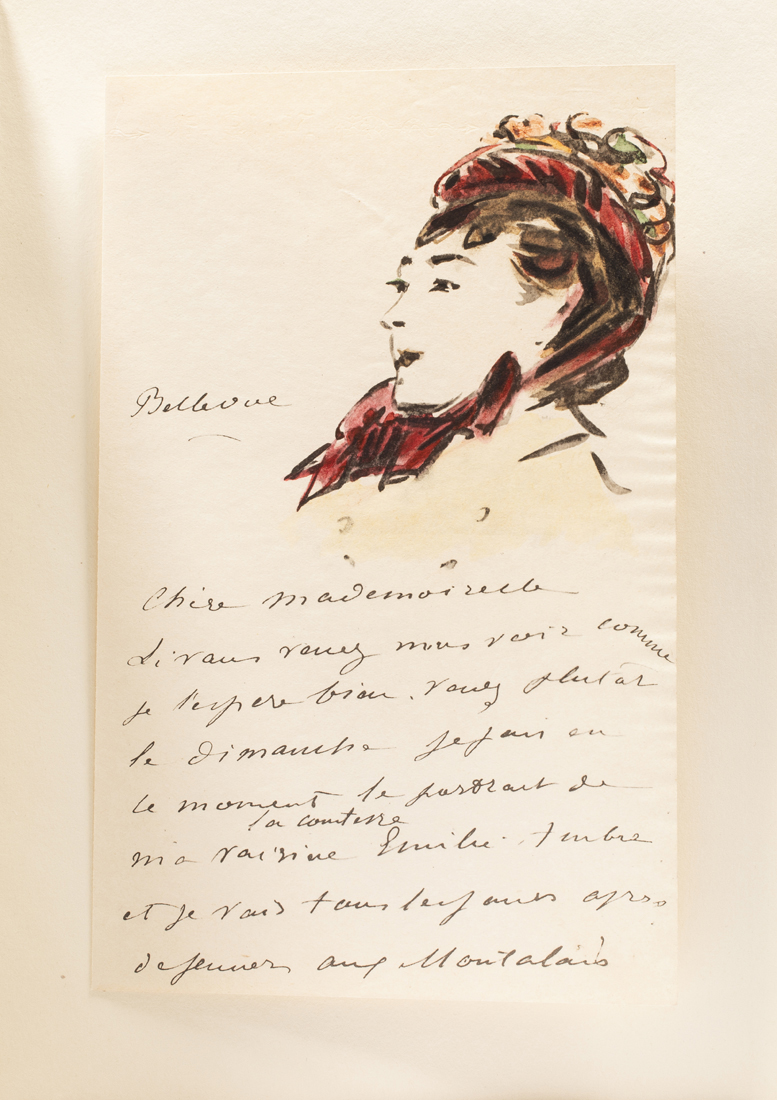 Bellevue
Chère mademoiselle
Si vous venez nous voir comme
je l'espere bien. venez plutot
le dimanche je fais en
ce moment le portrait de
la comtesse
ma voisine Emilie Ambre
et je vais tous les jours apres
dejeuner aux Montalais